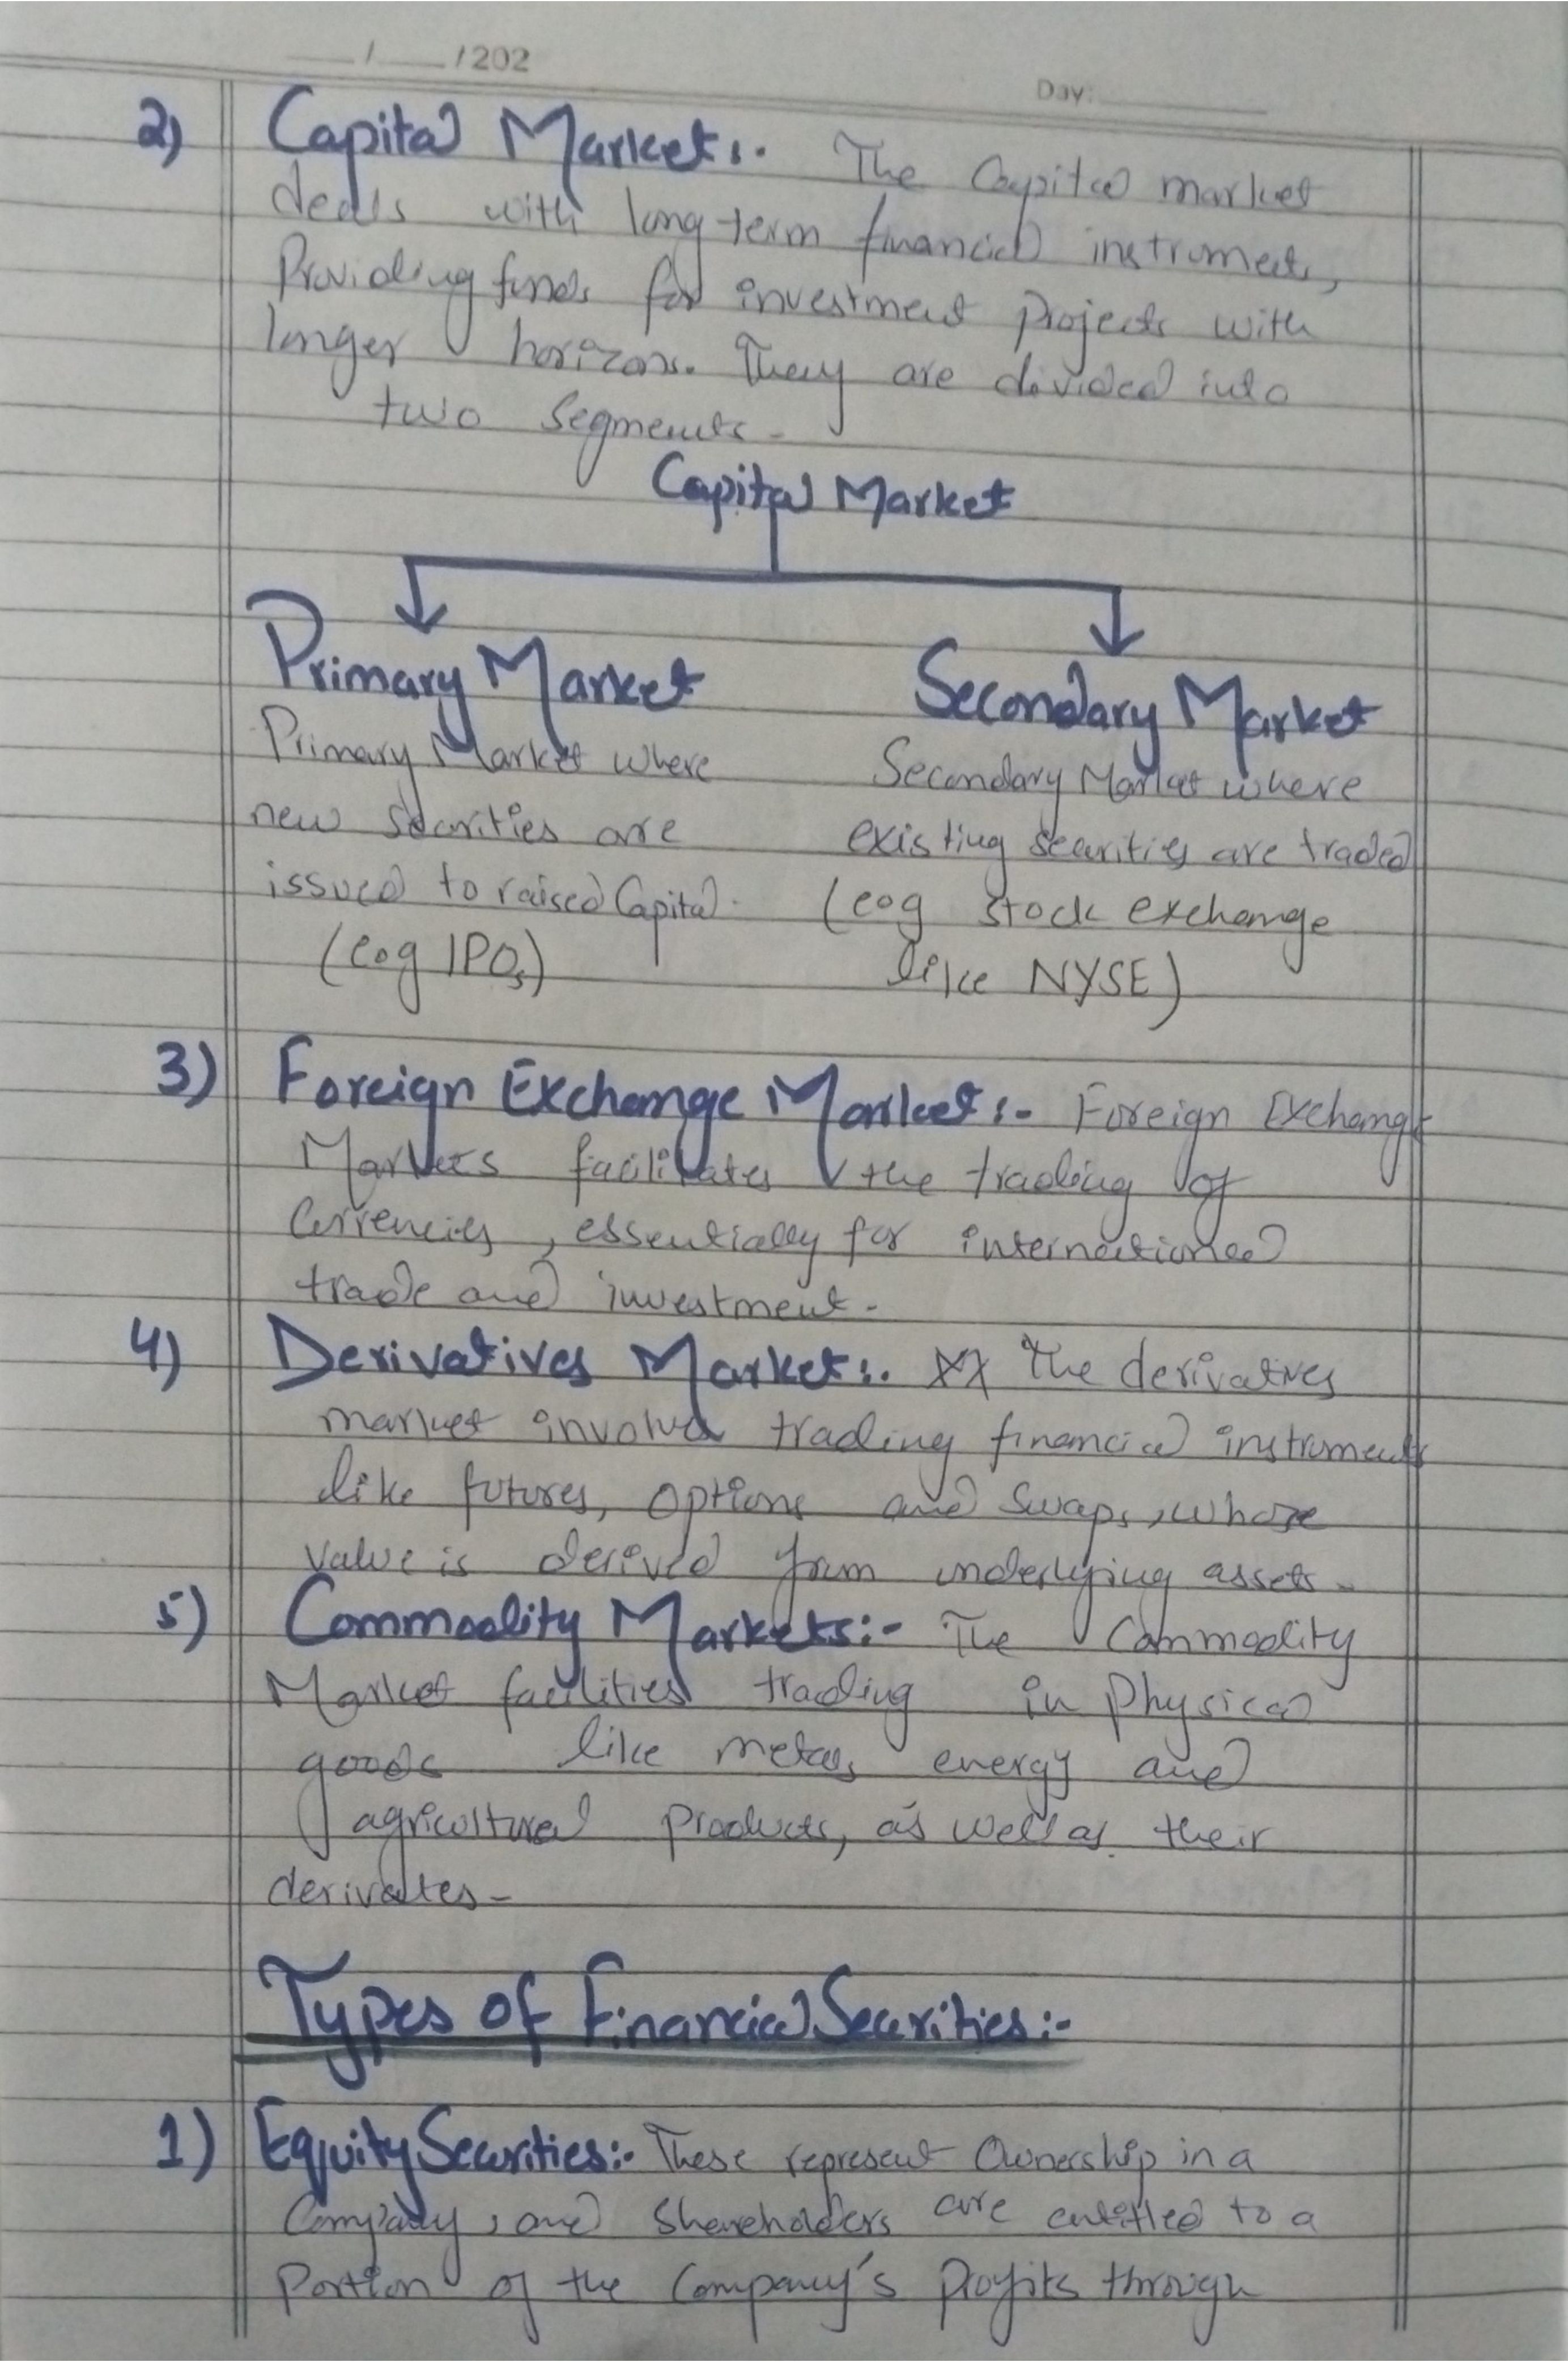 __/__/202
Day:
2) Capital Market:. The Capital market
deals with long-term financial instruments,
Providing funds for investment projects with
longer horizons. They are divided into
two segments-
Capital Market
Primary Market
Primary Market where
new securities are
issued to raised Capital.
(eog IPOs)
Secondary Market
Secondary Market where
existing securities are traded
(eog stock exchange
like NYSE)
3) Foreign Exchange Market:- Foreign Exchange
Markets facilitates the trading of
Currencies, essentially for international
trade and investment-
4) Derivatives Market:. The derivatives
market involve trading financial instruments
like futures, options and swaps, whose
value is derived from underlying assets-
5) Commodity Markets:- The Commodity
Market facilities trading in Physical
goods like metals energy and
agricultural products, as well as their
derivates-
Types of Financial Securities:-
1) Equity Securities:- These represent Ownership in a
Company, and Shareholders are entitled to a
Portion of the Company's Profits through